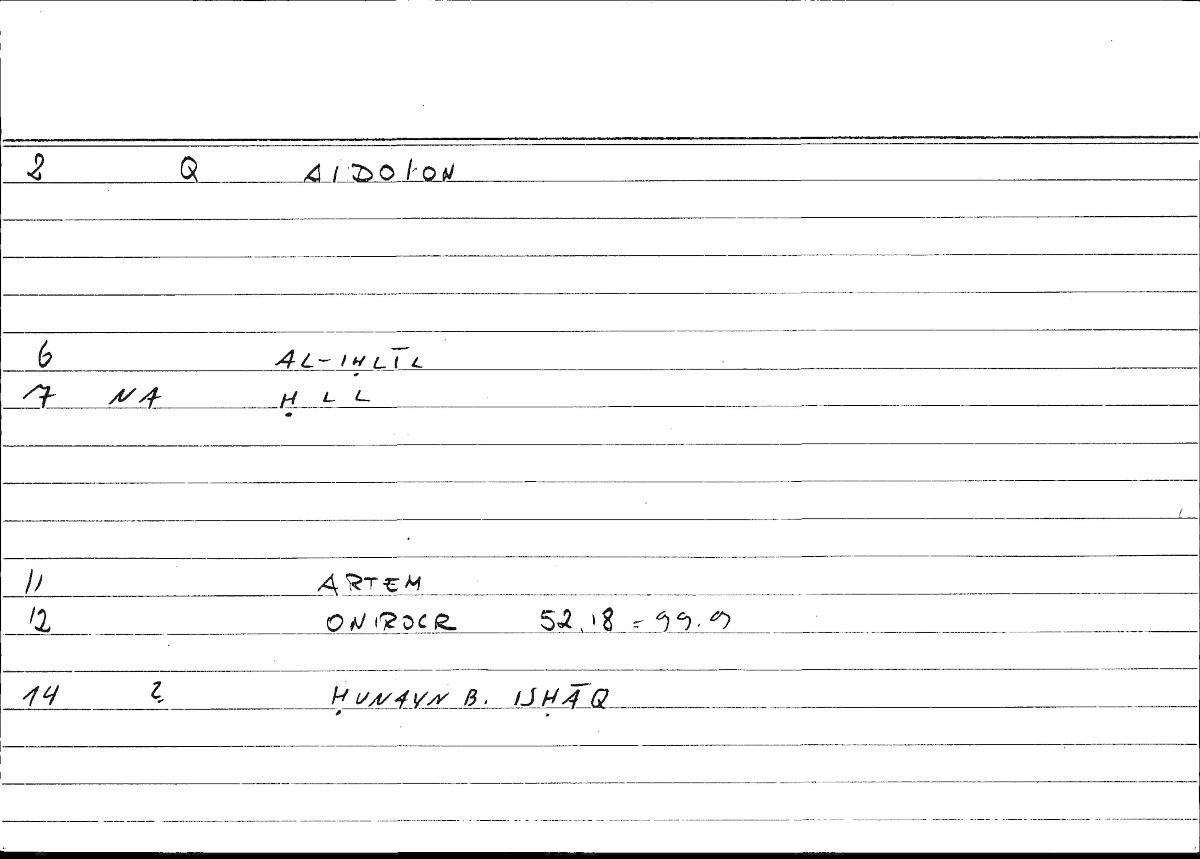 2 Q AIDOION
6 AL-IḤLĪL
7 NA ḤLL
11 ARTEM
12 ONIROCR 52.18 = 99.9
14 ? ḤUNAYN B. ISḤĀQ